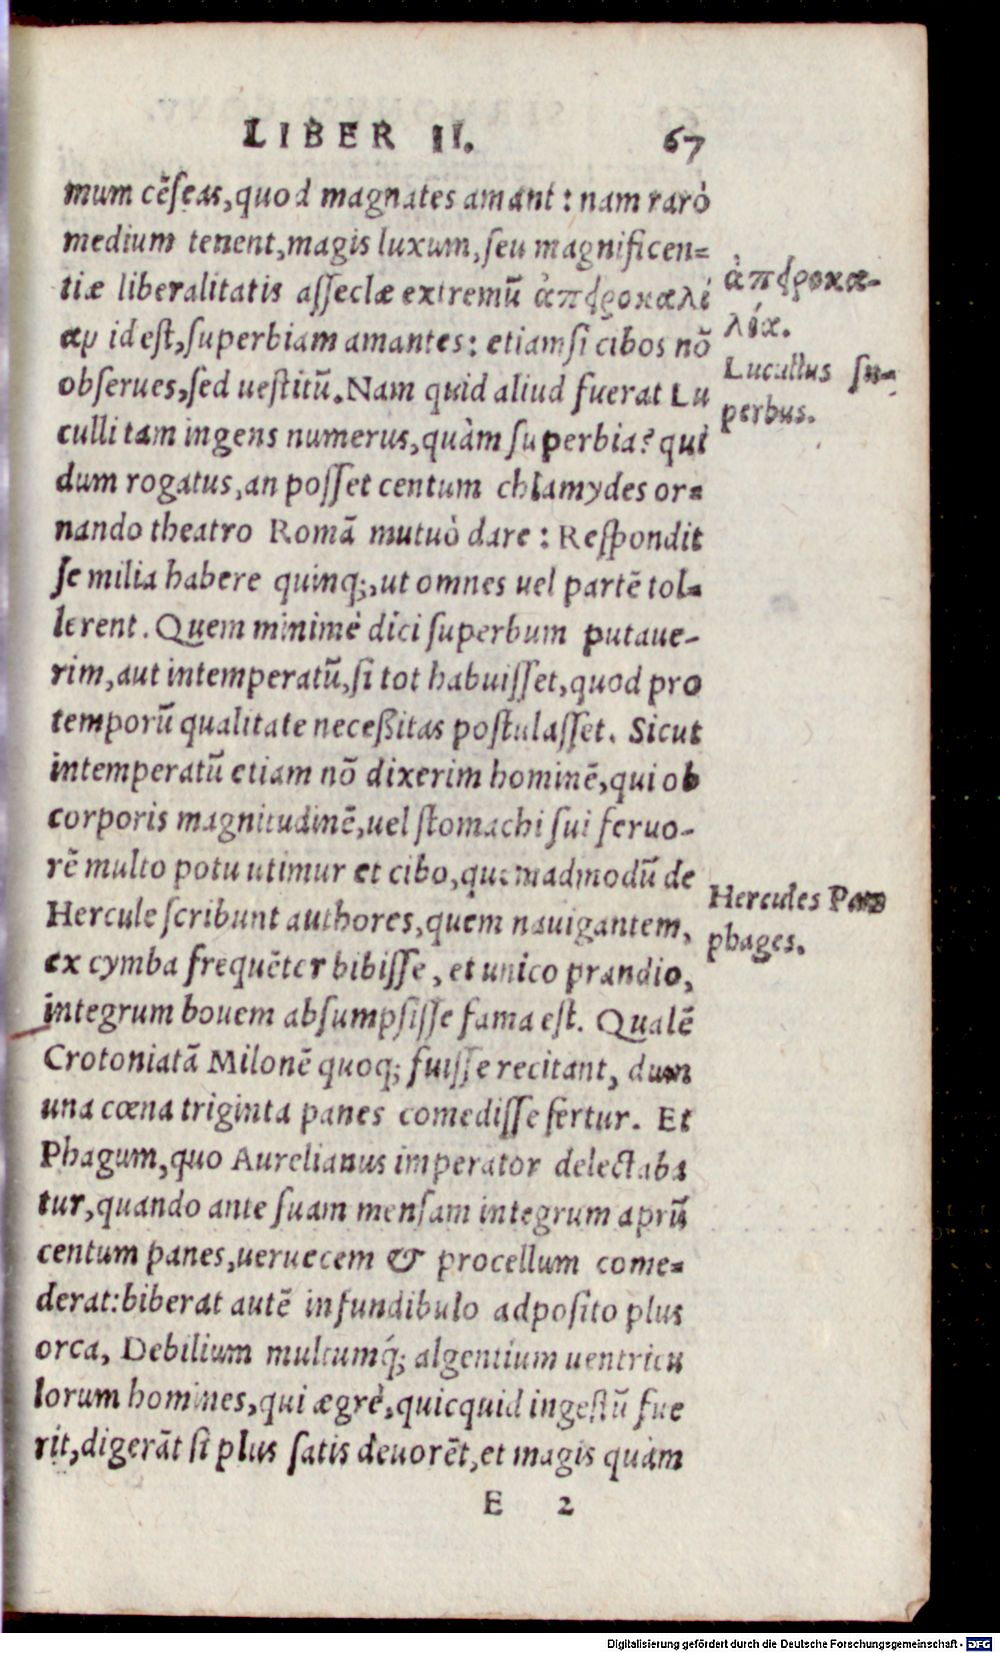 LIBER II. 67
mum cēſeas, quod magnates amant: nam rarò
medium tenent, magis luxum, ſeu magnificen=
tiæ liberalitatis aſſeclæ extremū ἀπειροκαλί
αν id eſt, ſuperbiam amantes: etiamſi cibos nō
obſerues, ſed ueſtitū. Nam quid aliud fuerat Lu
culli tam ingens numerus, quàm ſuperbia? qui
dum rogatus, an poſſet centum chlamydes or=
nando theatro Romā mutuò dare: Reſpondit
ſe milia habere quinq;, ut omnes uel partē tol=
lerent. Quem minimè dici ſuperbum putaue-
rim, aut intemperatū, ſi tot habuiſſet, quod pro
temporū qualitate neceßitas poſtulaſſet. Sicut
intemperatū etiam nō dixerim hominē, qui ob
corporis magnitudinē, uel ſtomachi ſui feruo-
rē multo potu utimur et cibo, quemadmodū de
Hercule ſcribunt authores, quem nauigantem,
ex cymba frequēter bibiſſe, et unico prandio,
integrum bouem abſumpſiſſe fama eſt. Qualē
Crotoniatā Milonē quoq; fuiſſe recitant, dum
una cœna triginta panes comediſſe fertur. Et
Phagum, quo Aurelianus imperator delectaba
tur, quando ante ſuam menſam integrum aprū
centum panes, ueruecem & procellum come=
derat: biberat autē infundibulo adpoſito plus
orca, Debilium multumq́; algentium uentricu
lorum homines, qui ægrè, quicquid ingeſtū fue
rit, digerāt ſi plus ſatis deuorēt, et magis quàm
E 2
ἀπειροκα-
λία.
Lucullus ſu=
perbus.
Hercules
phages.
Digitalisierung gefördert durch die Deutsche Forschungsgemeinschaft - DFG